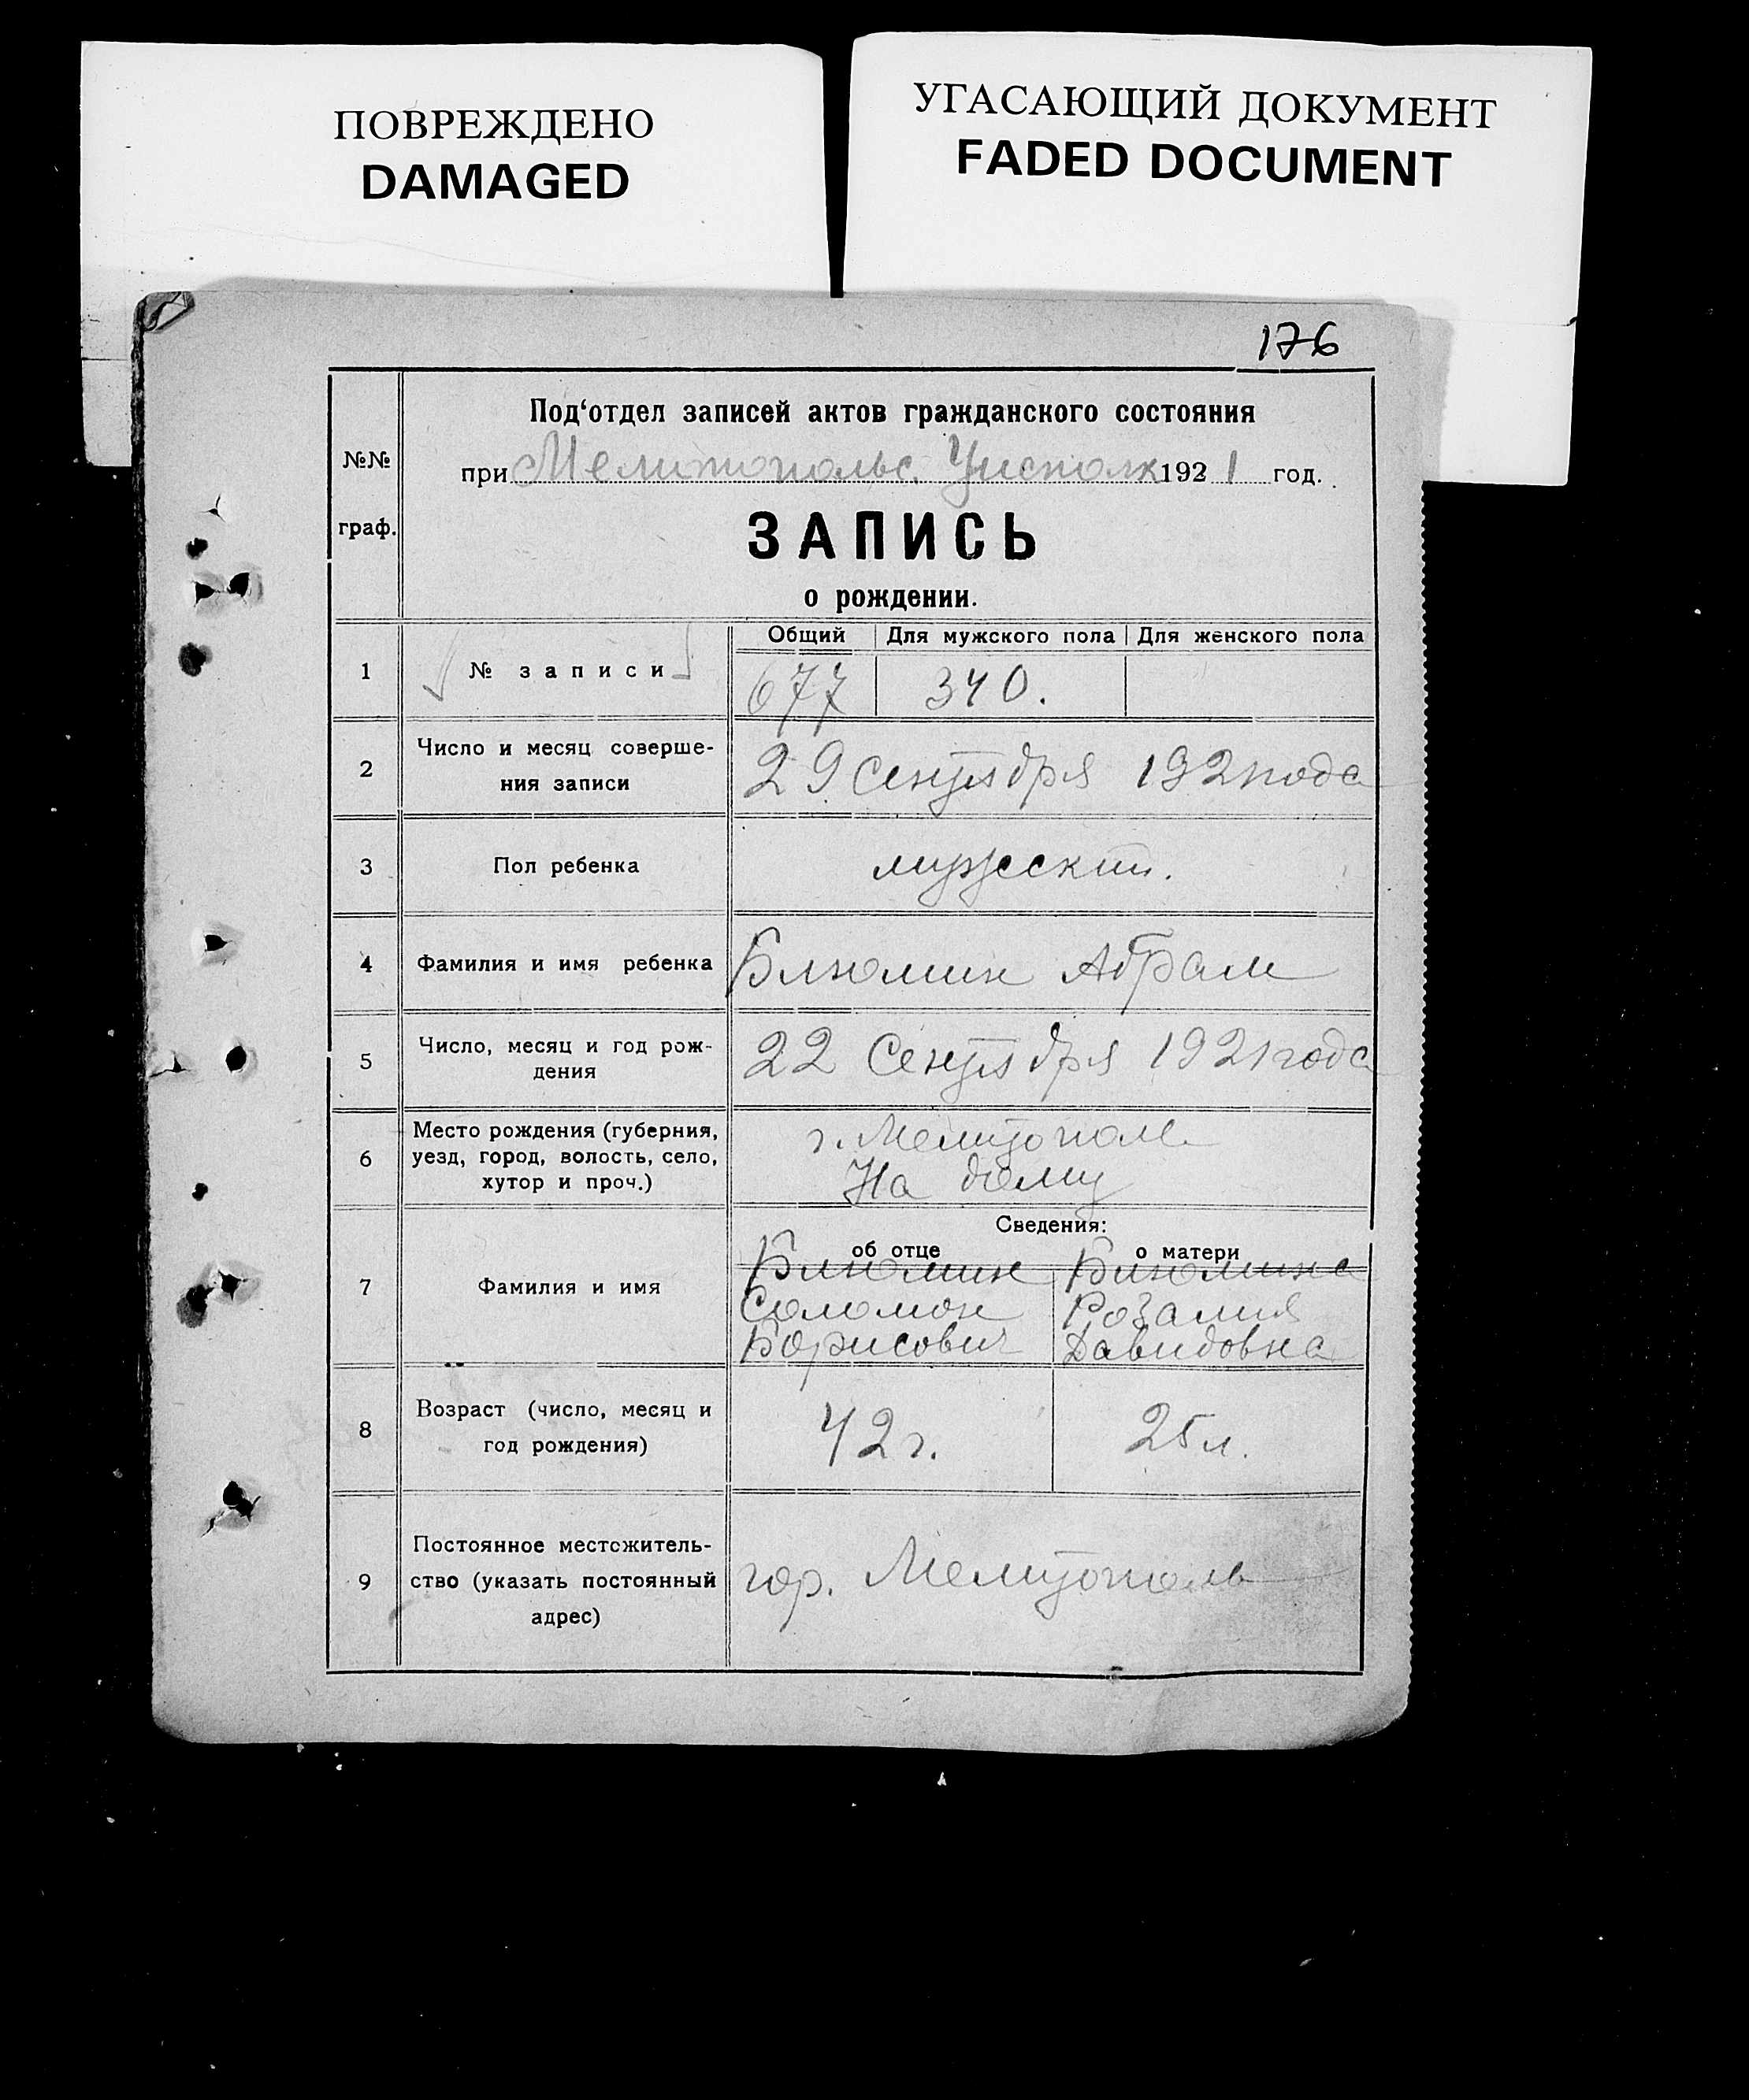 ПОВРЕЖДЕНО
DAMAGED
УГАСАЮЩИЙ ДОКУМЕНТ
FADED DOCUMENT
176
№№
граф.
Под‘отдел записей актов гражданского состояния
при Мелитопольс. Уисполк 1921 год.
ЗАПИСЬ
о рождении.
Общий Для мужского пола Для женского пола
1 № записи 677 340.
2 Число и месяц соверше-
ния записи
29 Сентября 1921 года
3 Пол ребенка мужский.
4 Фамилия и имя ребенка Блюмин Абрам
5 Число, месяц и год рож-
дения
22 Сентября 1921 года
6 Место рождения (губерния,
уезд, город, волость, село,
хутор и проч.)
г. Мелитополь
На дому
Сведения:
об отце о матери
7 Фамилия и имя
Блюмин Блюмина
Соломон Розалия
Борисович Давидовна
8 Возраст (число, месяц и
год рождения)
42 г. 25 л.
9 Постоянное местожитель-
ство (указать постоянный
адрес)
гор. Мелитополь